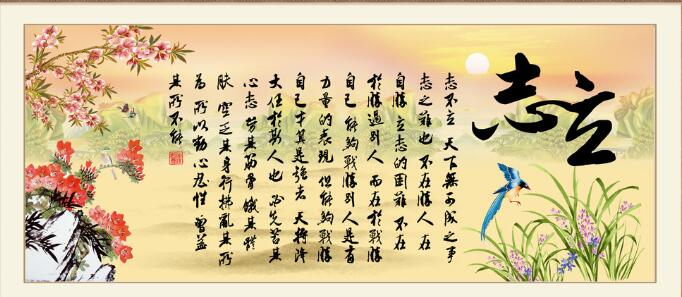 立志
志不立 天下無可成之事
志之難也 不在勝人 在
自勝 立志的困難 不在
於勝過別人 而在於戰勝
自己 能夠戰勝別人是有
力量的表現 但能夠戰勝
自己才真是強者 天將降
大任於斯人也 必先苦其
心志 勞其筋骨 餓其體
膚 空乏其身 行拂亂其所
為 所以動心忍性 曾益
其所不能